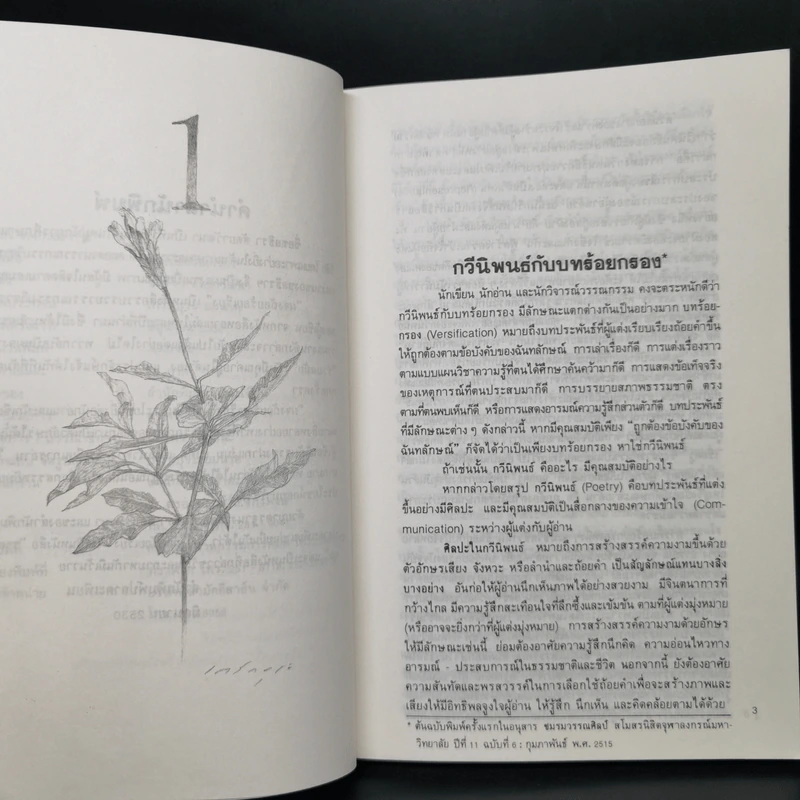 1
กวีนิพนธ์กับบทร้อยกรอง*
นักเขียน นักอ่าน และนักวิจารณ์วรรณกรรม คงจะตระหนักดีว่า
กวีนิพนธ์กับบทร้อยกรอง มีลักษณะแตกต่างกันเป็นอย่างมาก บทร้อย-
กรอง (Versification) หมายถึงบทประพันธ์ที่ผู้แต่งเรียบเรียงถ้อยคำขึ้น
ให้ถูกต้องตามข้อบังคับของฉันทลักษณ์ การเล่าเรื่องก็ดี การแต่งเรื่องราว
ตามแบบแผนวิชาความรู้ที่ตนได้ศึกษาค้นคว้ามาก็ดี การแสดงข้อเท็จจริง
ของเหตุการณ์ที่ตนประสบมาก็ดี การบรรยายสภาพธรรมชาติ ตรง
ตามที่ตนพบเห็นก็ดี หรือการแสดงอารมณ์ความรู้สึกส่วนตัวก็ดี บทประพันธ์
ที่มีลักษณะต่าง ๆ ดังกล่าวนี้ หากมีคุณสมบัติเพียง “ถูกต้องข้อบังคับของ
ฉันทลักษณ์” ก็จัดได้ว่าเป็นเพียงบทร้อยกรอง หาใช่กวีนิพนธ์
ถ้าเช่นนั้น กวีนิพนธ์ คืออะไร มีคุณสมบัติอย่างไร
หากกล่าวโดยสรุป กวีนิพนธ์ (Poetry) คือบทประพันธ์ที่แต่ง
ขึ้นอย่างมีศิลปะ และมีคุณสมบัติเป็นสื่อกลางของความเข้าใจ (Com-
munication) ระหว่างผู้แต่งกับผู้อ่าน
ศิลปะในกวีนิพนธ์ หมายถึงการสร้างสรรค์ความงามขึ้นด้วย
ตัวอักษรเสียง จังหวะ หรือลำนำและถ้อยคำ เป็นสัญลักษณ์แทนบางสิ่ง
บางอย่าง อันก่อให้ผู้อ่านนึกเห็นภาพได้อย่างสวยงาม มีจินตนาการที่
กว้างไกล มีความรู้สึกสะเทือนใจที่ลึกซึ้งและเข้มข้น ตามที่ผู้แต่งมุ่งหมาย
(หรืออาจจะยิ่งกว่าที่ผู้แต่งมุ่งหมาย) การสร้างสรรค์ความงามด้วยอักษร
ให้มีลักษณะเช่นนี้ ย่อมต้องอาศัยความรู้สึกนึกคิด ความอ่อนไหวทาง
อารมณ์ - ประสบการณ์ในธรรมชาติและชีวิต นอกจากนี้ ยังต้องอาศัย
ความสันทัดและพรสวรรค์ในการเลือกใช้ถ้อยคำเพื่อจะสร้างภาพและ
เสียงให้มีอิทธิพลจูงใจผู้อ่าน ให้รู้สึก นึกเห็น และคิดคล้อยตามได้ด้วย
* ต้นฉบับพิมพ์ครั้งแรกในอนุสาร ชมรมวรรณศิลป์ สโมสรนิสิตจุฬาลงกรณ์มหา-
วิทยาลัย ปีที่ 11 ฉบับที่ 6 : กุมภาพันธ์ พ.ศ. 2515
3